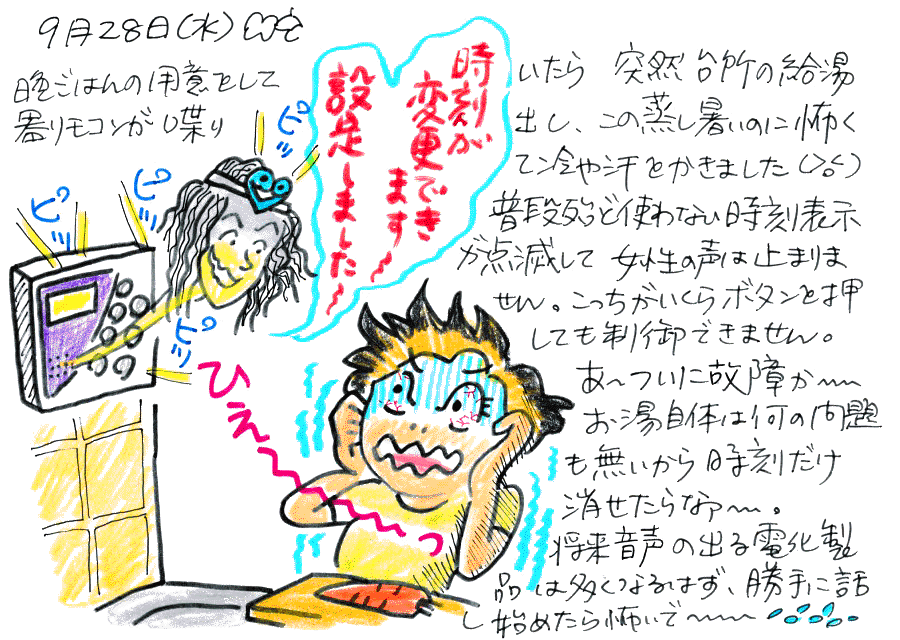 9月28日(水)
晩ごはんの用意をして
いたら 突然台所の給湯
器リモコンが喋り
出し、この蒸し暑いのに怖く
て冷や汗をかきました(>_<)
普段殆ど使わない時刻表示
が点滅して 女性の声は止まりま
せん。こっちがいくらボタンを押
しても制御できません。
あ〜ついに故障か〜〜
お湯自体は何の問題
も無いから時刻だけ
消せたらなァ〜。
将来音声の出る電化製
品は多くなるはず、勝手に話
し始めたら怖いで〜〜〜
時刻が
変更でき
ます〜
設定しました〜
ピッ
ピッ
ピッ
ピッ
ひえ〜〜〜っ